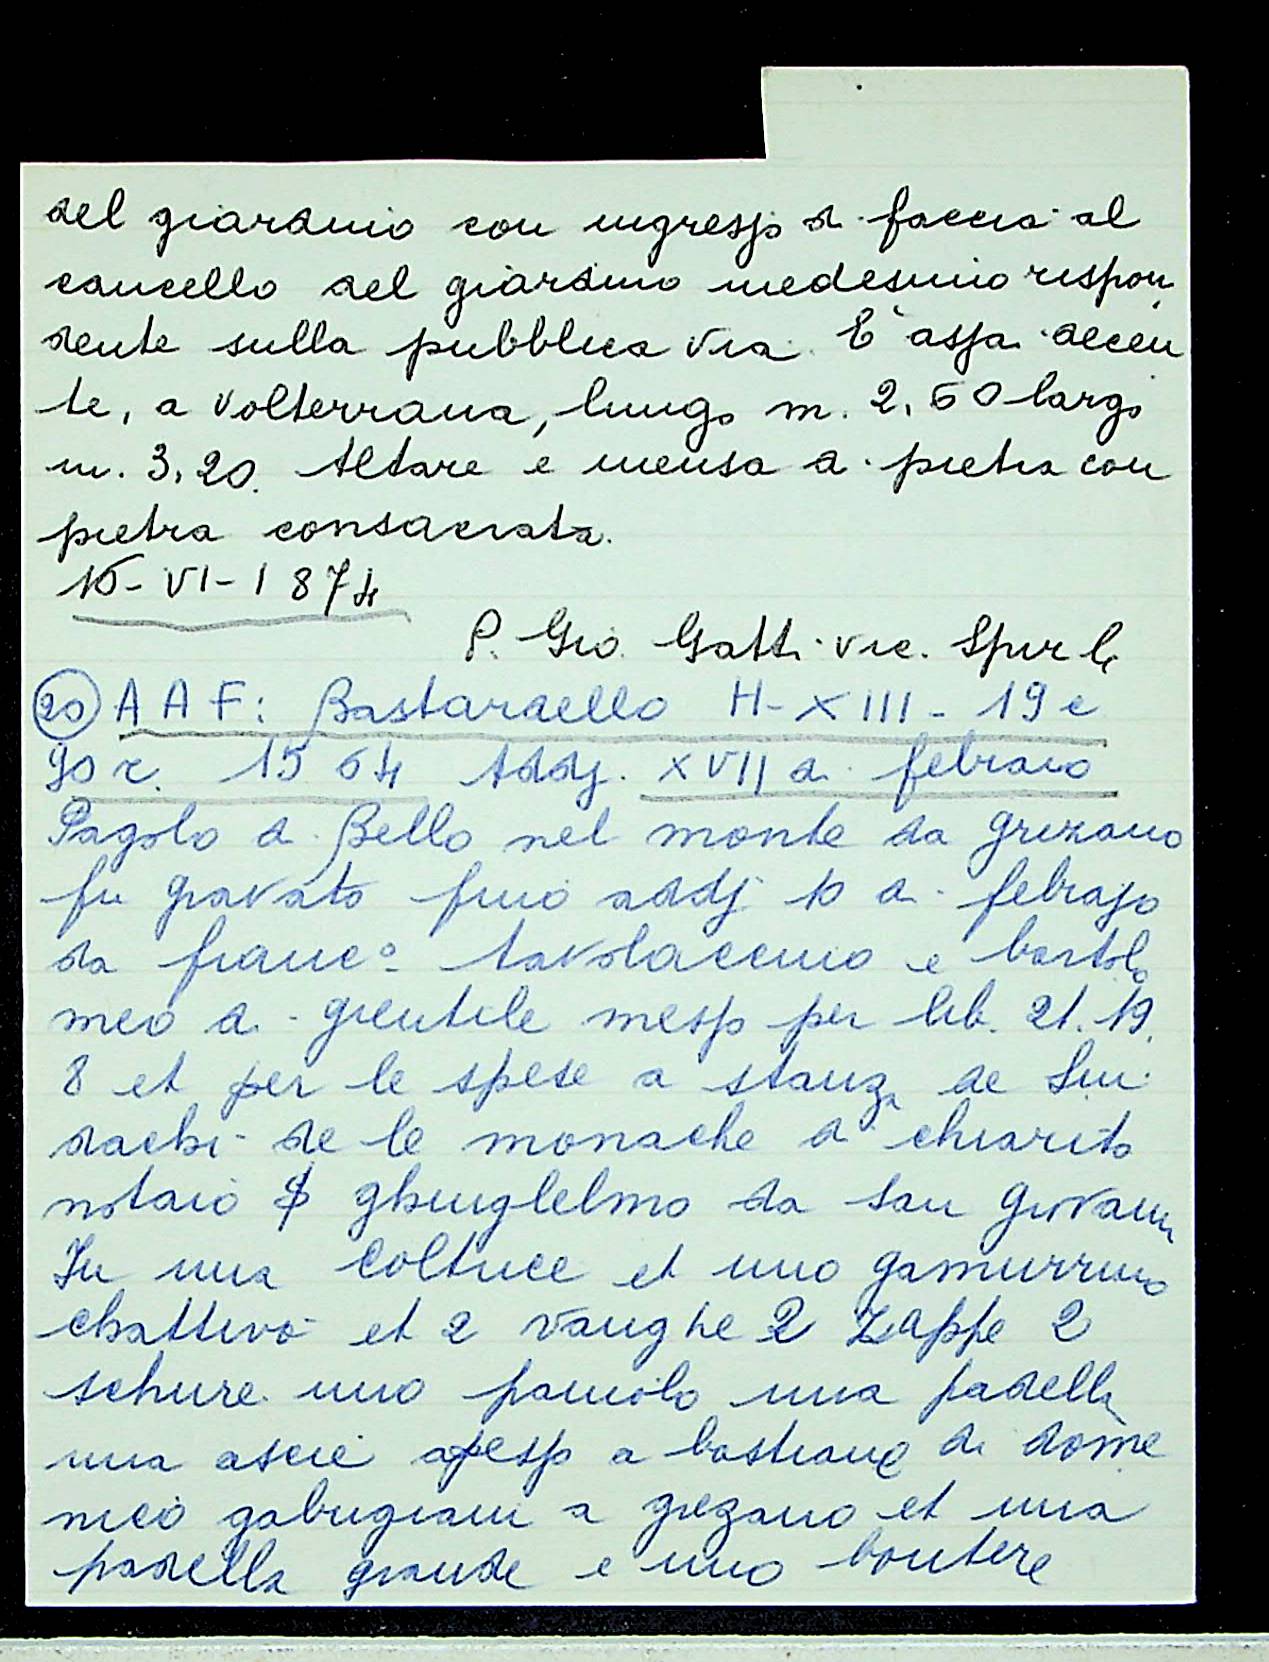 del giardino con ingresso di faccia al
cancello del giardino medesimo rispon
dente sulla pubblica via. È assai decen
te, a volterrana, lungo m. 2,60 largo
m. 3,20. Altare e mensa di pietra con
pietra consacrata.
10-VI-1874
P. Gio. Gatti vic. Spir le
20 A A F: Bastardello H-XIII-19 c
90 r. 1564 Addj. XVII di febraio
Pagolo di Bello nel monte da grezano
fu gravato fino addj 10 di febrajo
da franc° tavolaccino e bartolo
meo di gientile messo per lib. 21.19.
8 et per le spese a stanza de Sin
dachi de le monache di chiarito
notaio ghuglelmo da san Giovanni
In una coltrice et uno gamurrino
chattivo et 2 vanghe 2 zappe 2
schure uno paiuolo una padella
una ascie apresso a bastiano di dome
nico gabugiani a grezano et una
padella grande e uno